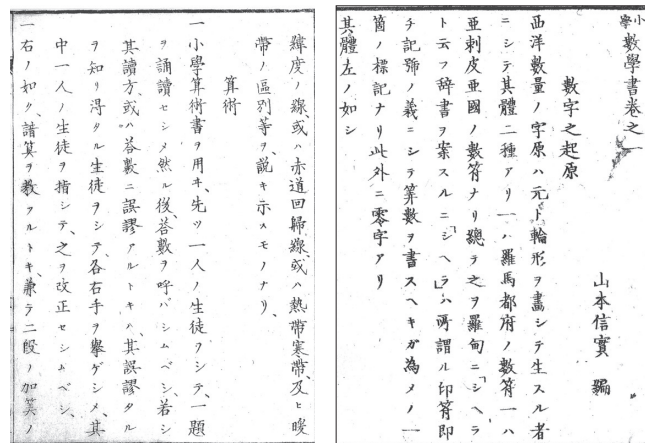 小學數學書卷之一
山本信實 編
數字之起原
西洋數量ノ字原ハ元ト輪形ヲ畫シテ生スル者
ニシテ其體二種アリ一ハ羅馬都府ノ數符一ハ
亜剌皮亜國ノ數符ナリ總テ之ヲ羅甸ニ「シヘラ
ト云フ辞書ヲ案スルニ「シヘラ」ハ所謂ル印符即
チ記號ノ義ニシテ筭數ヲ書スヘキガ為メノ一
箇ノ標記ナリ此外ニ零字アリ
其體左ノ如シ
緯度ノ線、或ハ赤道回歸線、或ハ熱帶寒帶及ヒ暖
帶ノ區別等ヲ説キ示スモノナリ、
算術
一小學算術書ヲ用ヰ、先ツ一人ノ生徒ヲシテ、一題
ヲ誦讀セシメ然ル後、答數ヲ呼バシムベシ、若シ
其讀方、或ハ答數ニ誤謬アルトキハ、其誤謬タル
ヲ知リ得タル生徒ヲシテ、各右手ヲ擧ゲシメ、其
中一人ノ生徒ヲ指シテ、之ヲ改正セシムベシ、
一右ノ如ク、諸算ヲ教フルトキ、兼テ二段ノ加算ノ